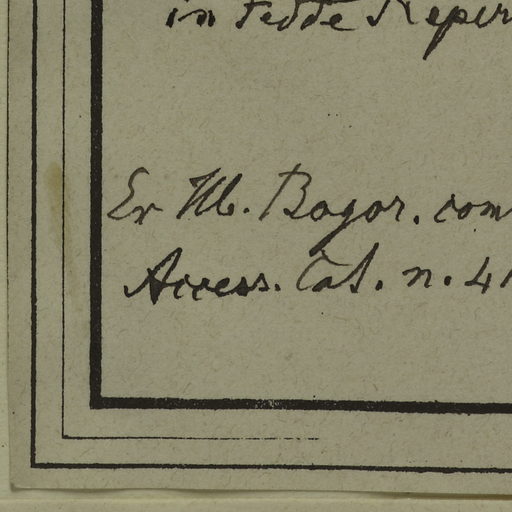 in Fedde Reper
Ex Hb. Bogor. com
Access. Cat. n. 41